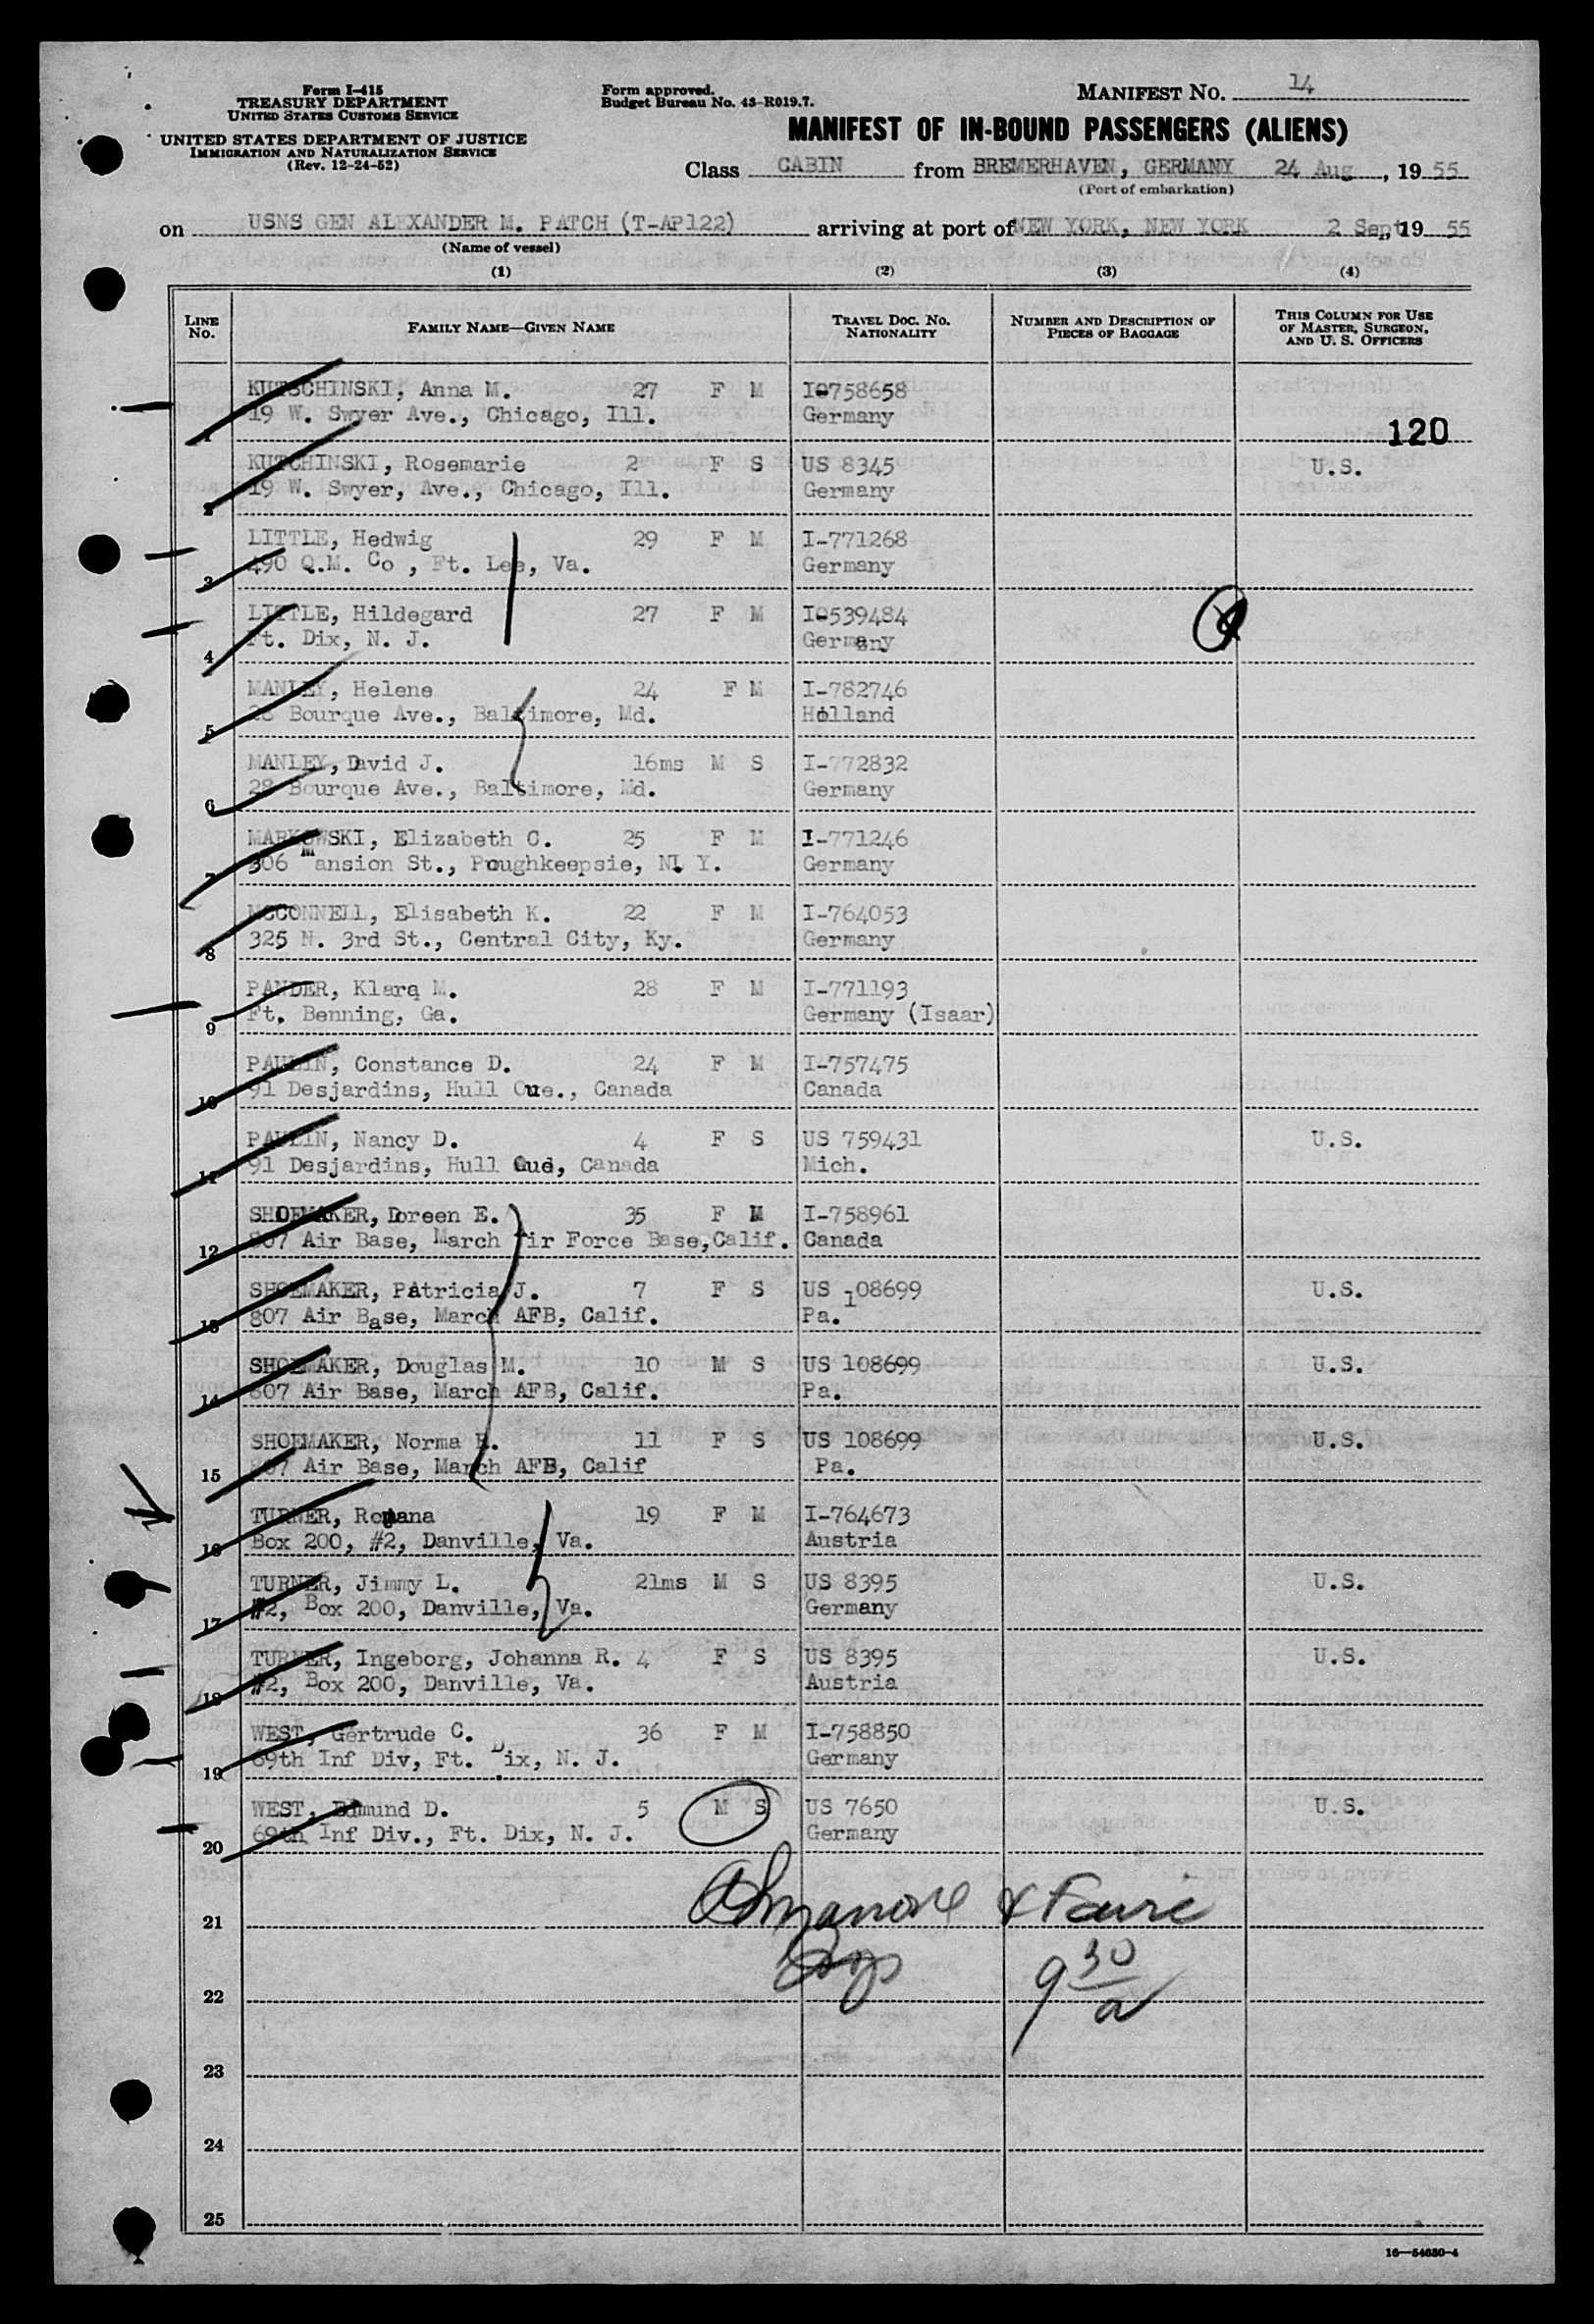 Form I-415
TREASURY DEPARTMENT
UNITED STATES CUSTOMS SERVICE
UNITED STATES DEPARTMENT OF JUSTICE
IMMIGRATION AND NATURALIZATION SERVICE
(Rev. 12-24-52)
Form approved.
Budget Bureau No. 43-R019.7.
MANIFEST NO. 14
MANIFEST OF IN-BOUND PASSENGERS (ALIENS)
Class CABIN from BREMERHAVEN, GERMANY 24 Aug, 1955
(Port of embarkation)
on USNS GEN ALEXANDER M. PATCH (T-AP122) arriving at port of NEW YORK, NEW YORK 2 Sept, 1955
(Name of vessel)
(1) (2) (3) (4)
LINE No. FAMILY NAME—GIVEN NAME TRAVEL DOC. NO. NATIONALITY NUMBER AND DESCRIPTION OF PIECES OF BAGGAGE THIS COLUMN FOR USE OF MASTER, SURGEON, AND U. S. OFFICERS
KUTSCHINSKI, Anna M. 27 F M I-758658
1 19 W. Swyer Ave., Chicago, Ill. Germany 120
KUTCHINSKI, Rosemarie 2 F S US 8345 U.S.
2 19 W. Swyer, Ave., Chicago, Ill. Germany
LITTLE, Hedwig 29 F M I-771268
3 490 Q.M. Co , Ft. Lee, Va. Germany
LITTLE, Hildegard 27 F M I-539484
4 Ft. Dix, N. J. Germany
MANLEY, Helene 24 F M I-782746
5 28 Bourque Ave., Baltimore, Md. Holland
MANLEY, David J. 16ms M S I-772832
6 28 Bourque Ave., Baltimore, Md. Germany
MARKOWSKI, Elizabeth C. 25 F M I-771246
7 306 Mansion St., Poughkeepsie, N. Y. Germany
MCCONNELL, Elisabeth K. 22 F M I-764053
8 325 N. 3rd St., Central City, Ky. Germany
PANDER, Klara M. 28 F M I-771193
9 Ft. Benning, Ga. Germany (Isaar)
PAULIN, Constance D. 24 F M I-757475
10 91 Desjardins, Hull Que., Canada Canada
PAULIN, Nancy D. 4 F S US 759431 U.S.
11 91 Desjardins, Hull Que, Canada Mich.
SHOEMAKER, Doreen E. 35 F M I-758961
12 807 Air Base, March Air Force Base, Calif. Canada
SHOEMAKER, Patricia J. 7 F S US 108699 U.S.
13 807 Air Base, March AFB, Calif. Pa.
SHOEMAKER, Douglas M. 10 M S US 108699 U.S.
14 807 Air Base, March AFB, Calif. Pa.
SHOEMAKER, Norma 11 F S US 108699 U.S.
15 807 Air Base, March AFB, Calif Pa.
TURNER, Romana 19 F M I-764673
16 Box 200, #2, Danville, Va. Austria
TURNER, Jimmy L. 21ms M S US 8395 U.S.
17 #2, Box 200, Danville, Va. Germany
TURNER, Ingeborg, Johanna R. 4 F S US 8395 U.S.
18 #2, Box 200, Danville, Va. Austria
WEST, Gertrude C. 36 F M I-758850
19 69th Inf Div, Ft. Dix, N. J. Germany
WEST, Edmund D. 5 M S US 7650 U.S.
20 69th Inf Div., Ft. Dix, N. J. Germany
21
9 30
22 a
23
24
25
16—54680-4